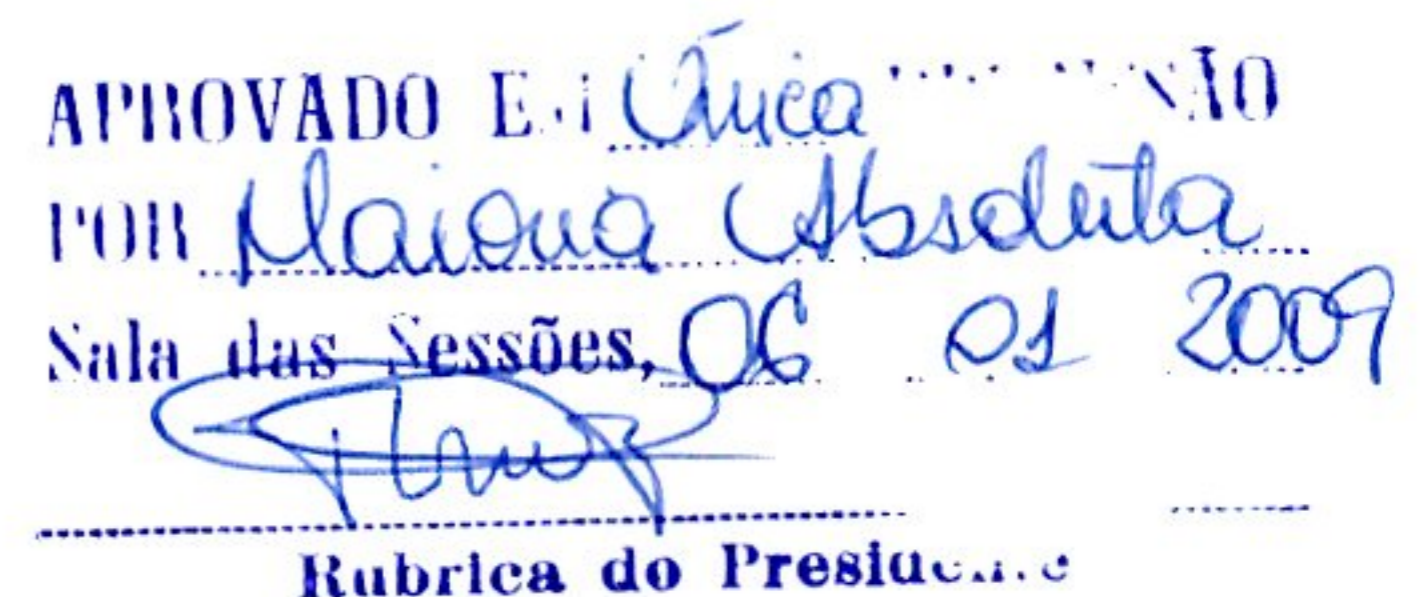 APROVADO EM Única
POR Maioria Absoluta
Sala das Sessões, 06 01 2009
Rubrica do Presidente